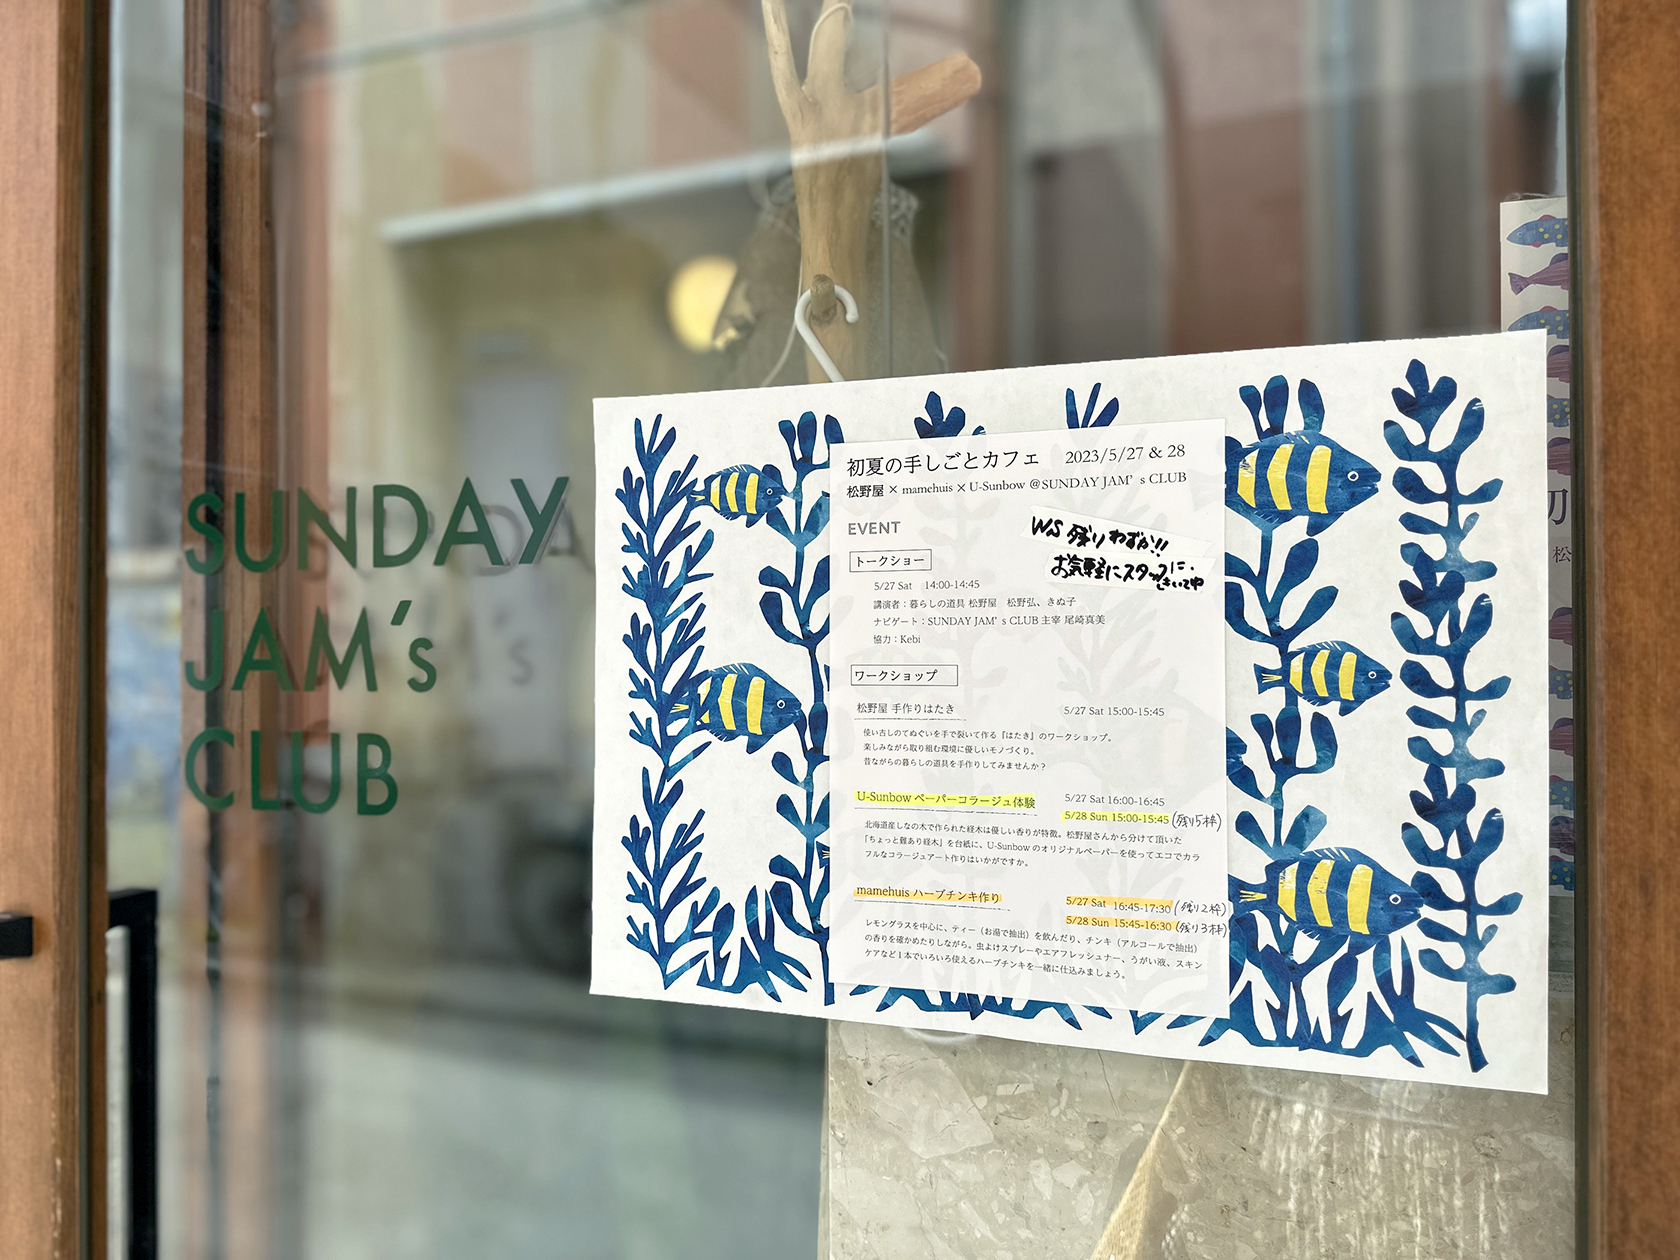 SUNDAY
JAM's
CLUB
初夏の手しごとカフェ 2023/5/27 & 28
松野屋 × mamehuis × U-Sunbow @SUNDAY JAM's CLUB
EVENT
WS 残りわずか!!
お気軽にスタッフに
トークショー
5/27 Sat 14:00-14:45
講演者：暮らしの道具 松野屋 松野弘、きぬ子
ナビゲート：SUNDAY JAM's CLUB 主宰 尾崎真美
協力：Kebi
ワークショップ
松野屋 手作りはたき 5/27 Sat 15:00-15:45
使い古しのてぬぐいを手で裂いて作る『はたき』のワークショップ。
楽しみながら取り組む環境に優しいモノづくり。
昔ながらの暮らしの道具を手作りしてみませんか？
U-Sunbow ペーパーコラージュ体験 5/27 Sat 16:00-16:45
5/28 Sun 15:00-15:45 (残り5枠)
北海道産しなの木で作られた経木は優しい香りが特徴。松野屋さんから分けて頂いた
「ちょっと難あり経木」を台紙に、U-Sunbow のオリジナルペーパーを使ってエコでカラ
フルなコラージュアート作りはいかがですか。
mamehuis ハーブチンキ作り 5/27 Sat 16:45-17:30 (残り2枠)
5/28 Sun 15:45-16:30 (残り3枠)
レモングラスを中心に、ティー（お湯で抽出）を飲んだり、チンキ（アルコールで抽出）
の香りを確かめたりしながら。虫よけスプレーやエアフレッシュナー、うがい液、スキン
ケアなど1本でいろいろ使えるハーブチンキを一緒に仕込みましょう。
松